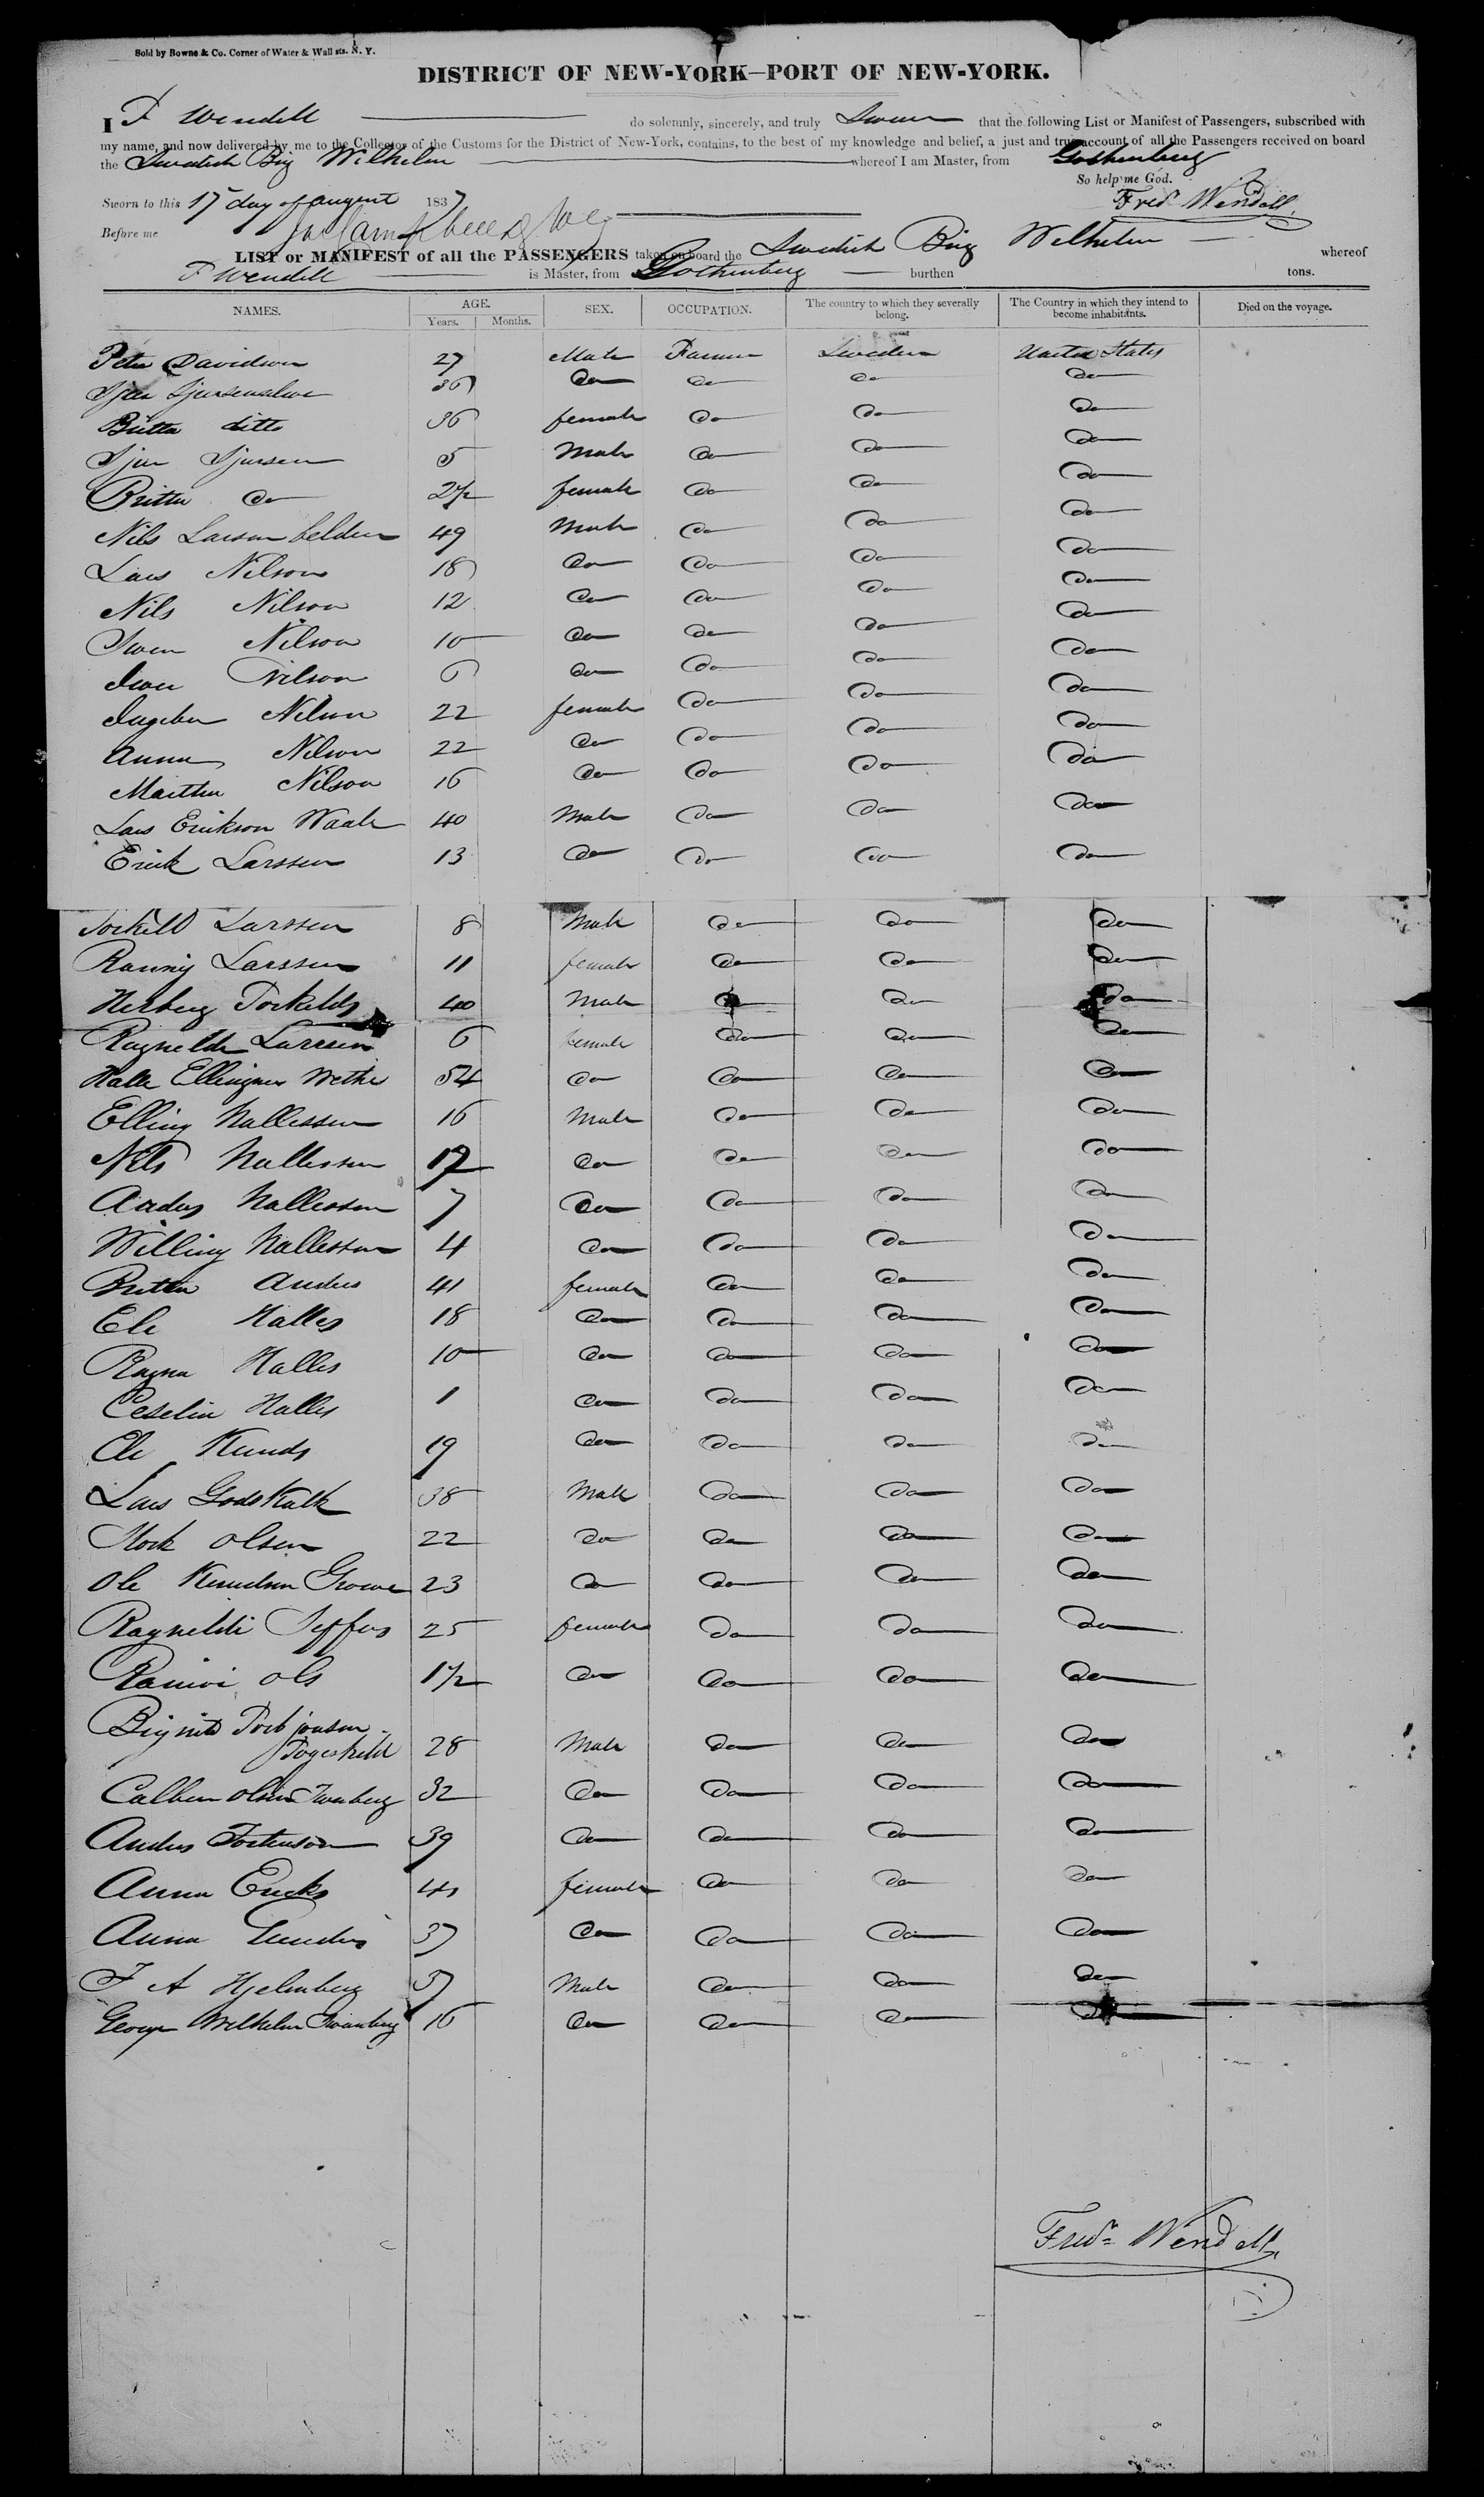 Sold by Bowne & Co. Corner of Water & Wall sts. N. Y.
DISTRICT OF NEW-YORK—PORT OF NEW-YORK.
I F Wendell do solemnly, sincerely, and truly Swear that the following List or Manifest of Passengers, subscribed with
my name, and now delivered by me to the Collector of the Customs for the District of New-York, contains, to the best of my knowledge and belief, a just and true account of all the Passengers received on board
the Swedish Brig Wilhelm whereof I am Master, from Gothenberg
So help me God.
Sworn to this 17 day of august 1837 Fred. Wendell
Before me
LIST or MANIFEST of all the PASSENGERS taken on board the Swedish Brig Wilhelm whereof
F Wendell is Master, from Gothenberg burthen tons.
NAMES. AGE. SEX. OCCUPATION. The country to which they severally belong. The Country in which they intend to become inhabitants. Died on the voyage.
Years. Months.
Peter Davidson 27 Male Farmer Sweden United States
36 Do Do Do Do
Britta ditto 36 female Do Do Do
Sjur Sjursen 5 Male Do Do Do
Britta Do 2½ female Do Do Do
Nils Larson 49 Male Do Do Do
Lars Nilson 18 Do Do Do Do
Nils Nilson 12 Do Do Do Do
Swen Nilson 10 Do Do Do Do
Iwer Nilson 6 Do Do Do Do
Ingeber Nilson 22 female Do Do Do
Anna Nilson 22 Do Do Do Do
Martha Nilson 16 Do Do Do Do
Lars Erikson Waale 40 Male Do Do Do
Erick Larssen 13 Do Do Do Do
Torkild Larssen 8 Male Do Do Do
Ranny Larssen 11 female Do Do Do
Herberg Torkelds 40 Male Do Do Do
Ragnelde Larssen 6 female Do Do Do
Halle Wethe 54 Do Do Do Do
Elling Hallessen 16 Male Do Do Do
Nils Hallessen 17 Do Do Do Do
Andus Hallessen 7 Do Do Do Do
Willing Hallessen 4 Do Do Do Do
Britta Andus 41 female Do Do Do
Ele Halles 18 Do Do Do Do
Ragna Halles 10 Do Do Do Do
Ceselia Halles 1 Do Do Do Do
Ele Knuds 19 Do Do Do Do
Lars Godskalk 38 Male Do Do Do
Stork Olsen 22 Do Do Do Do
Ole Knudsen Growe 23 Do Do Do Do
Ragnelde Seffers 25 female Do Do Do
Ols 1½ Do Do Do Do
Torbjonsen
28 Male Do Do Do
Olsen 32 Do Do Do Do
Andus Tortenson 39 Do Do Do Do
Anna Ericks 41 female Do Do Do
Anna 37 Do Do Do Do
F A Hjelmberg 37 Male Do Do Do
George Wilhelm Swanberg 16 Do Do Do Do
Fred. Wendell